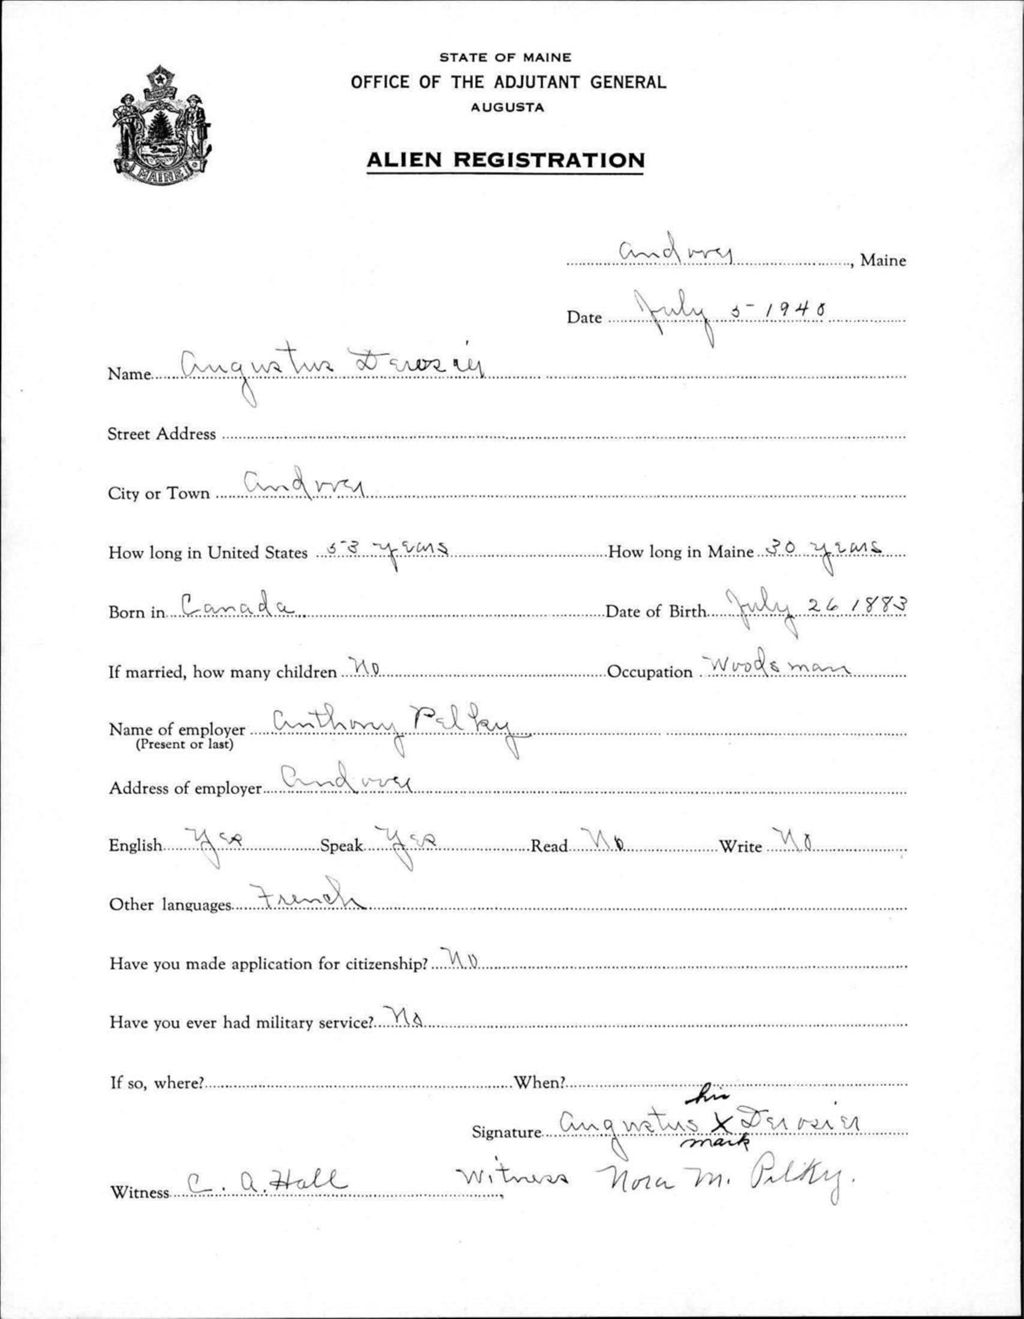 STATE OF MAINE
OFFICE OF THE ADJUTANT GENERAL
AUGUSTA
ALIEN REGISTRATION
MAINE
Andover, Maine
Date July 5 - 1940
Name Augustus Derosier
Street Address
City or Town Andover
How long in United States 53 years How long in Maine 30 years
Born in Canada Date of Birth July 26 1883
If married, how many children No Occupation Woodsman
Name of employer Anthony Pelky
(Present or last)
Address of employer Andover
English Yes Speak Yes Read No Write No
Other languages French
Have you made application for citizenship? No
Have you ever had military service? No
If so, where? When?
his
Signature Augustus X Derosier
mark
Witness C. A. Hall Witness Nora M. Pelky.